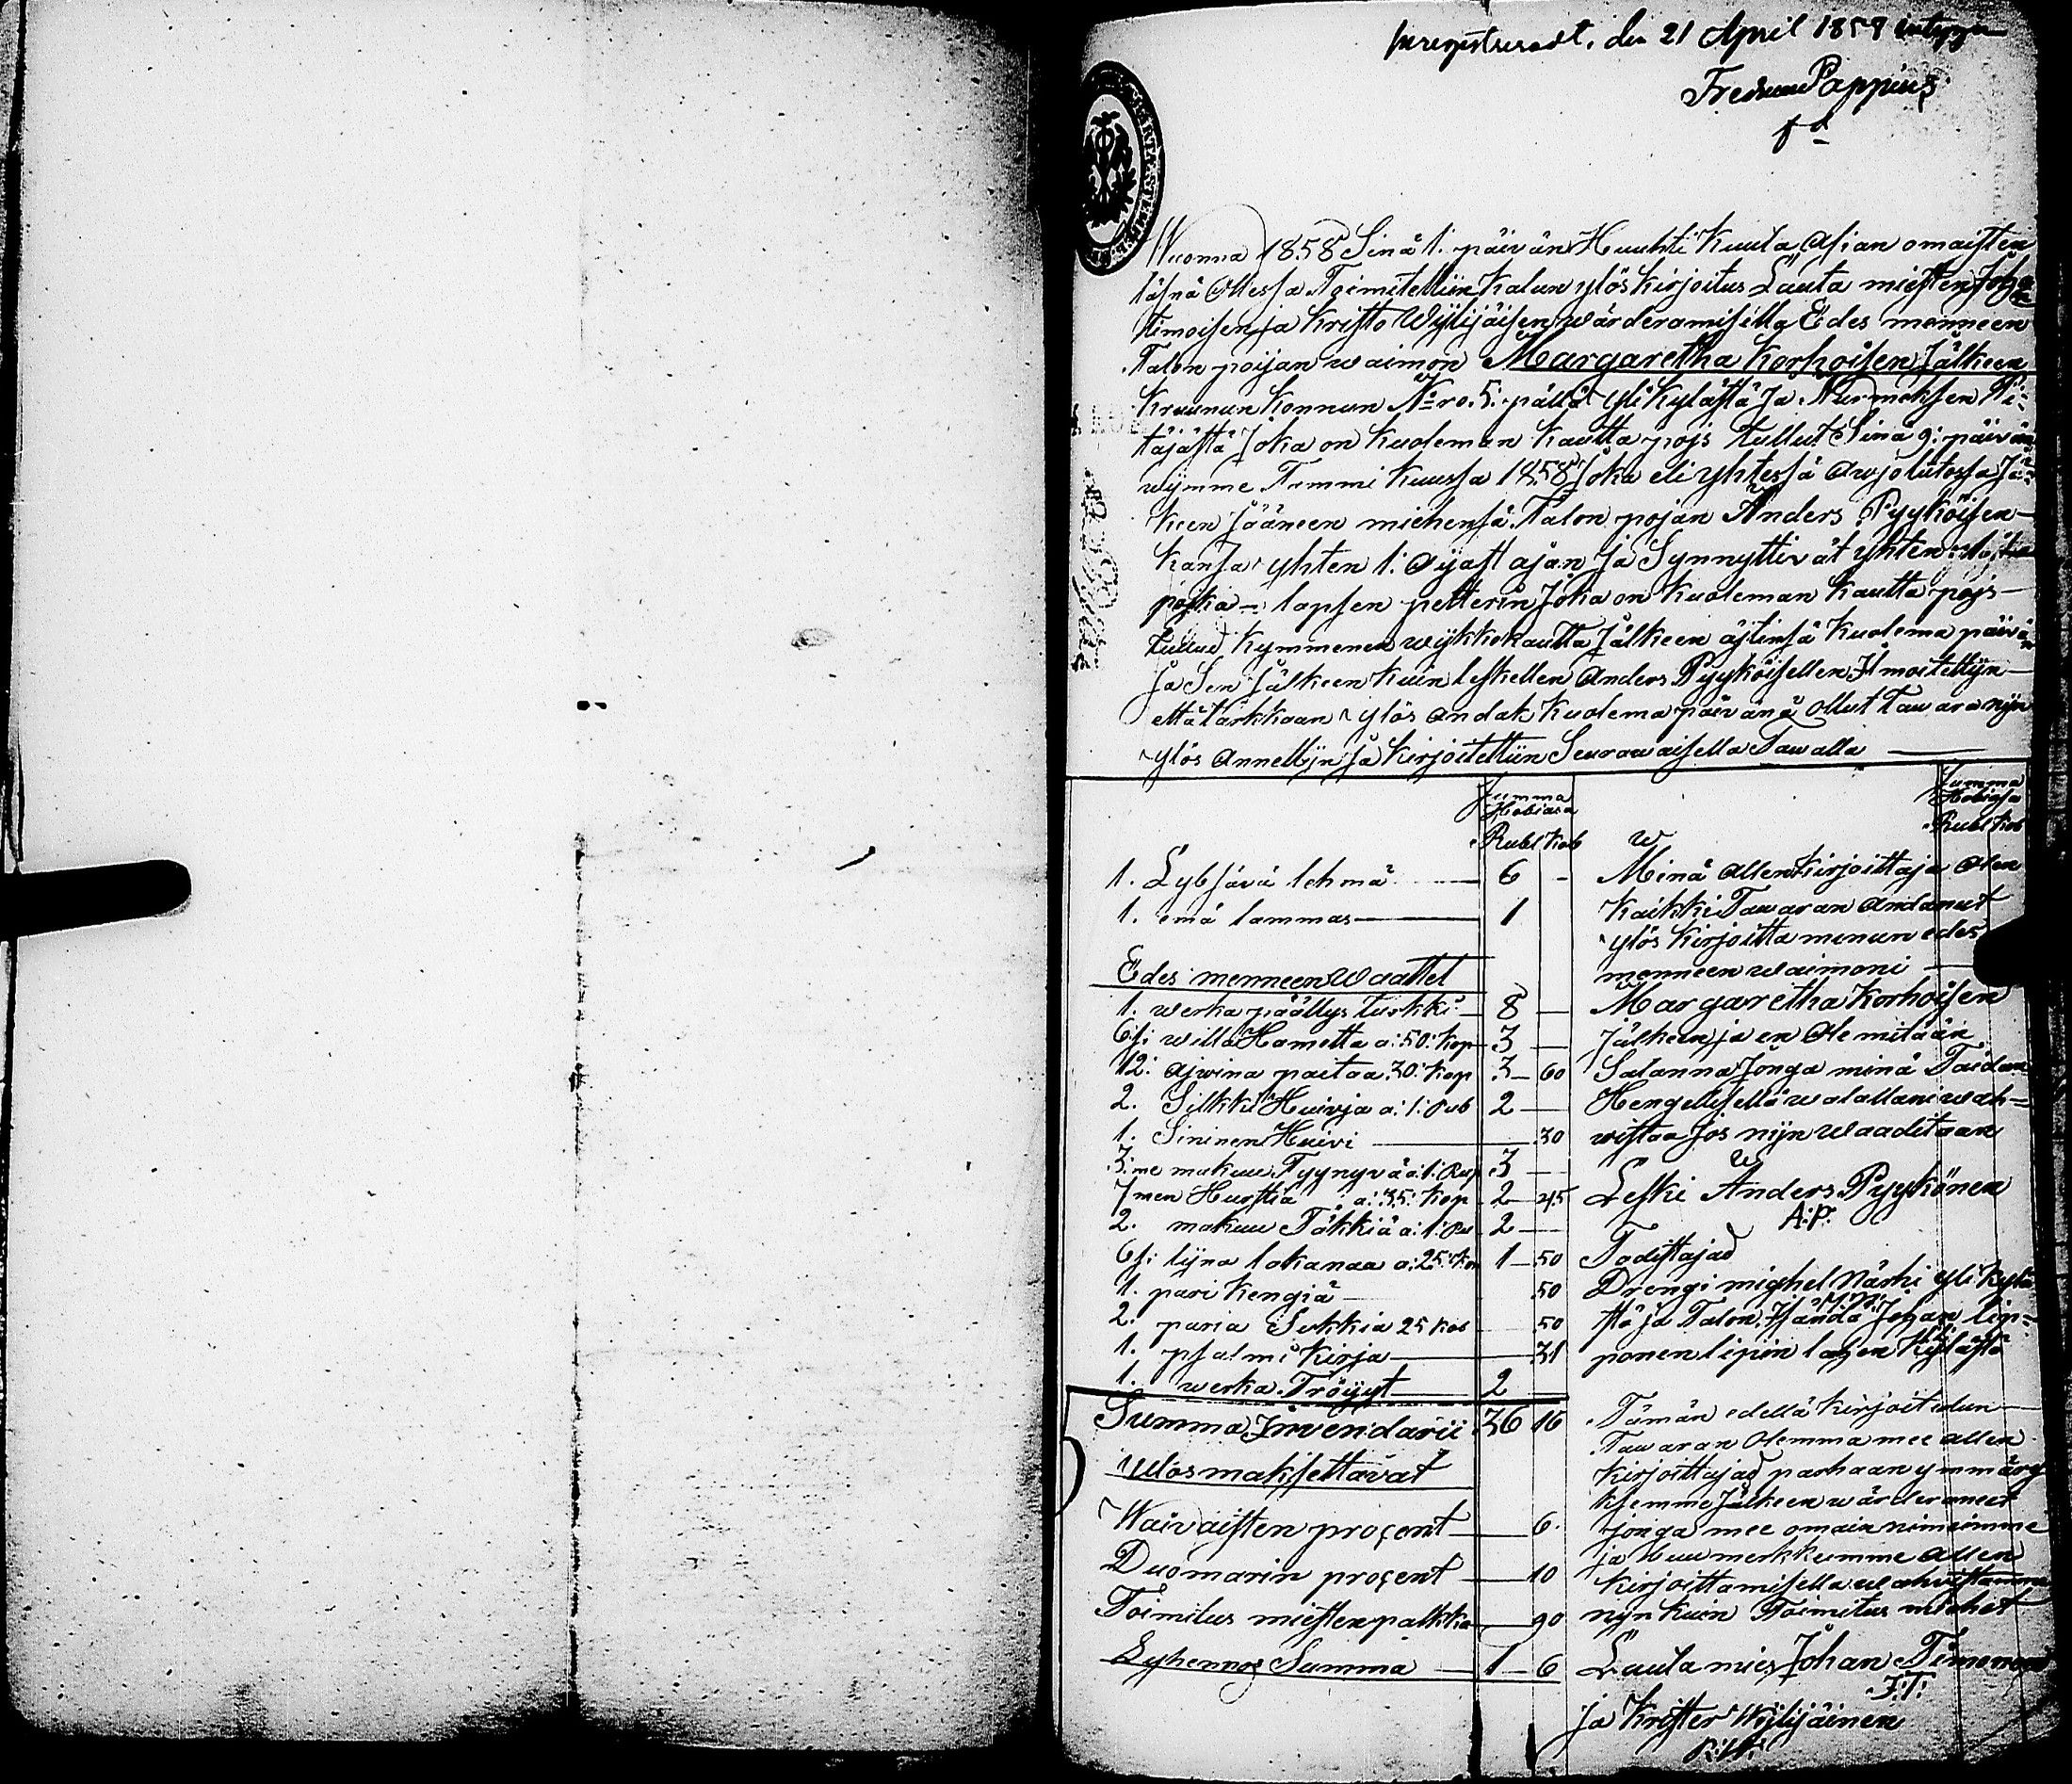 Inregistreradt, den 21 April 1858 intygar
Fredr Pappius
Wuonna 1858 Sinä 1. päivän Huuhti Kuuta Asian omaisten
läsnä Ollessa Toimitettiin Kalun ylös kirjoitus Lauta miesten Joha
timoisen ja Kristo Wyılijäisen wärderamisella Edes menneen
Talon poijan waimon Margaretha Korhoisen Jälkeen
Kruunun Konnun No 5: pällä Yli Kylästä Ja Nurmeksen Pi-
täjästä Joka on Kuoleman Kautta pojs tullut Sinä 9: päivän
wijmme Tammi Kuussa 1858 Joka eli yhtessä Awjolitossa Jä-
keen Jääneen miehensä Talon pojan Anders Pyyköisen
Kansa yhten 1. Ajast ajan Ja Synnyttivät yhten
pojka- lapsen petterin Joka on Kuoleman Kautta pojs-
tullud Kymmenen wijkkokautta Jälkeen äjtinsä Kuolema päivän
Ja Sen Jälkeen Kuin leskellen Anders Pyyköisellen Ilmoitettijn
että tarkkaan ylös andak Kuolema päivänä ollut Tawara nijn
ylös Annettijn Ja Kirjoitettiin Seurawaisella Tawalla
Summa Hobiasa
Rubl Kob
1. Lybsävä lehmä 6 -
1. emä lammas 1
Edes menneen Waattet
1. werka päällys turkki 8
6si willa Hametta a: 50: Kop 3
12: ajwina paitaa 30: Kop 3 60
2. Silkki Huivja a: 1: Rub 2
1. Sininen Huivi 30
3:me makuu Tyynyvä a: 1: Rup 3
7men Hurstia a: 35: Kop 2 45
2. makuu Täkkiä a: 1: Ru 2
6si lijna lakanaa a: 25: Kop 1 50
1. pari Kengiä 50
2. paria Sukkia 25 Kob 50
1. psalmi Kirja 31
1. werka Tröijyt 2
Summa Inventarii 36 16
ulosmaksettavat
Waivaisten procent 6.
Duomarin procent 10
Toimitus miesten palkka 90
Lyhennos Summa 1 6
Summa Hobiasa
Rubl Kob
Minä Allen Kirjoittaja Olen
Kaikki Tawaran Andanut
ylös Kirjoitta minun edes
menneen waimoni
Margaretha Korhoisen
Jälkeen ja en Ole mitään
Salanna Jonga minä Taidan
Hengellisellä walallani wah-
wistaa Jos nijn waaditaan
Leski Anders Pyykönen
A:P:
Todistajad
Drengi mighel Närhi yli Kylä
stä ja Talon Isändä Johan lip-
ponen lipin lahen Kylästä
Tämän edellä kirjoitetun
Tawaran Olemma mee allen
kirjoittajad parhaan ymmärry
ksemme Jälkeen wärderaneet
jonga mee omain nimeimme
ja buumerkkeimme allen
Kirjoittamisella wahvistamme
nijn kuin Toimitus miehet
Lauta mies Johan Timonen
J:T:
Ja Krister Wijlijäinen